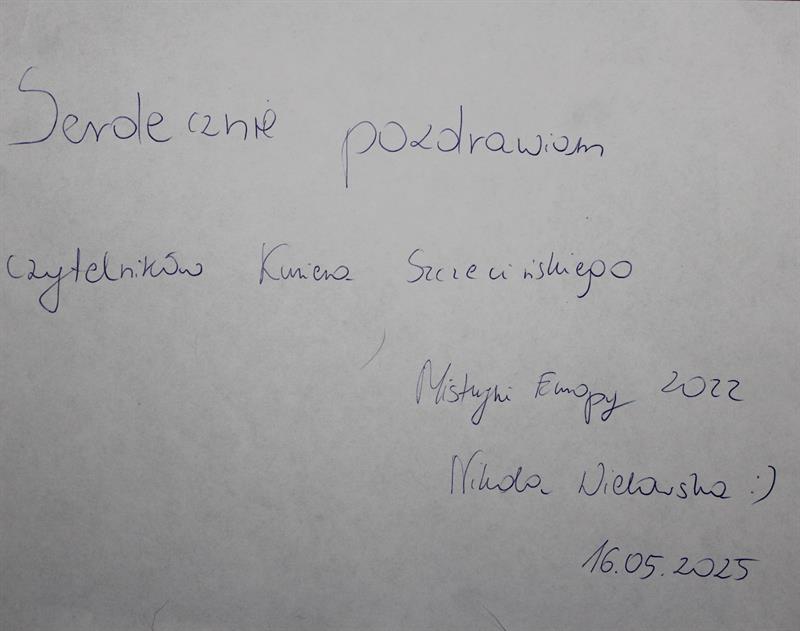 Serdecznie pozdrawiam
czytelników Kuriera Szczecińskiego
Mistrzyni Europy 2022
Nikola Wielowska :)
16.05.2025